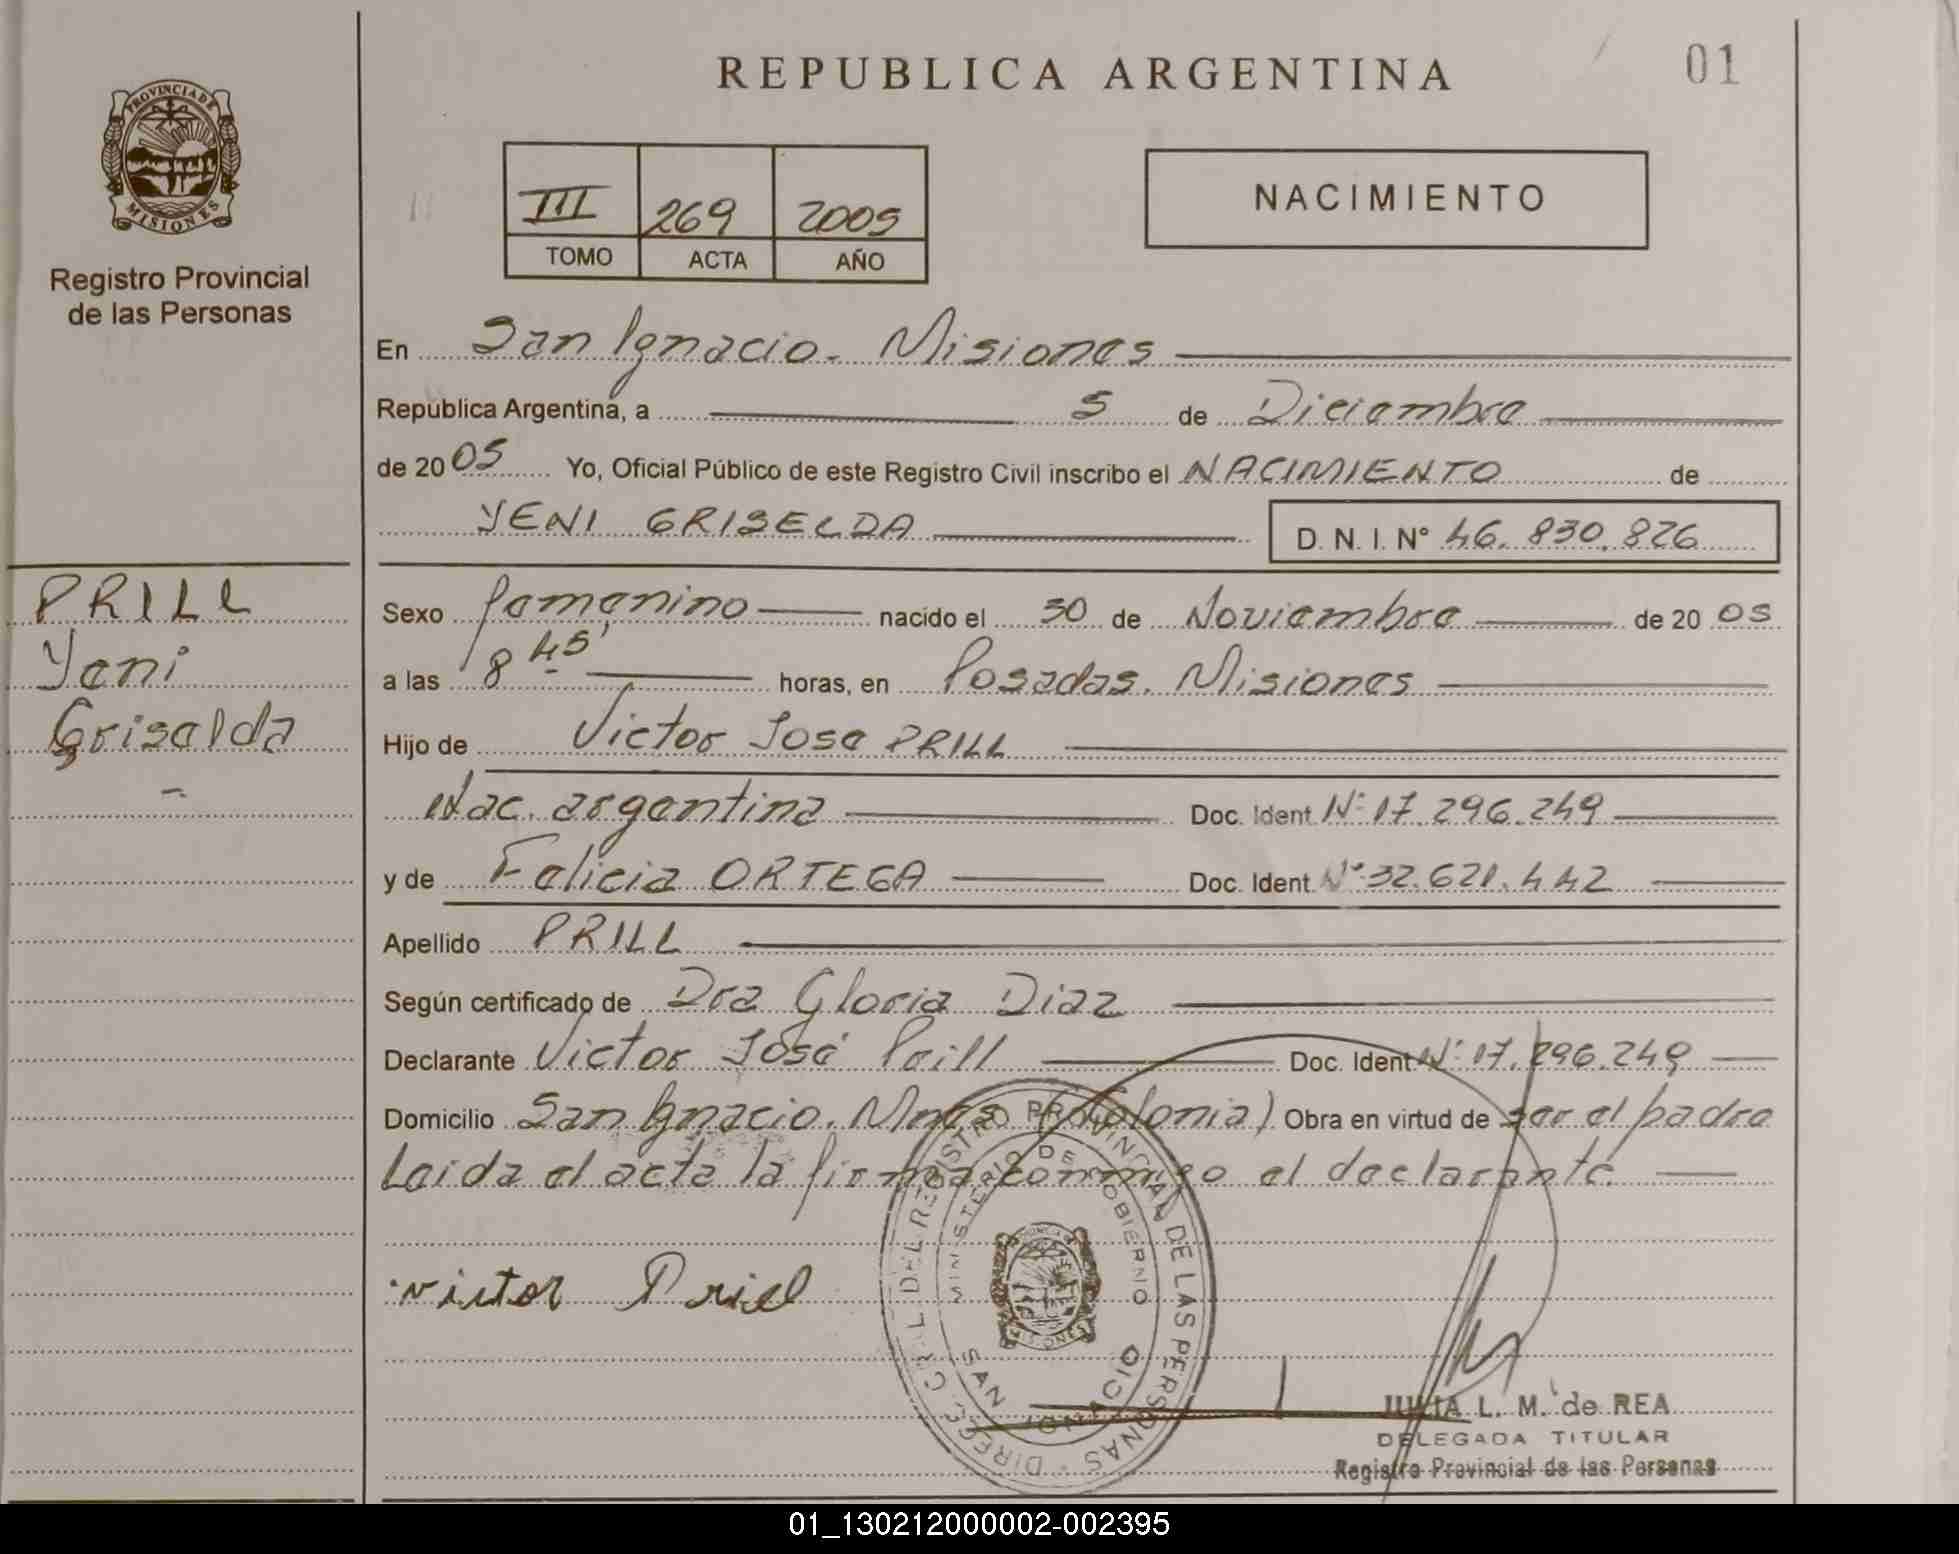 REPUBLICA ARGENTINA
01
PROVINCIA DE
MISIONES
Registro Provincial
de las Personas
III 269 2005
TOMO ACTA AÑO
NACIMIENTO
En San Ignacio. Misiones
Republica Argentina, a 5 de Diciembre
de 2005 Yo, Oficial Público de este Registro Civil inscribo el NACIMIENTO de
YENI GRISELDA D. N. I. N° 46.830.826
PRILL
Yeni
Griselda
Sexo femenino nacido el 30 de Noviembre de 2005
a las 8 45' horas, en Posadas. Misiones
Hijo de Victor Jose PRILL
Nac. argentina Doc. Ident N° 17.296.249
y de Felicia ORTEGA Doc. Ident N° 32.621.442
Apellido PRILL
Según certificado de Dra Gloria Diaz
Declarante Victor José Prill Doc. Ident N° 17.296.249
Domicilio San Ignacio. Mnes (Colonia) Obra en virtud de ser el padre
Leida el acta la firma conmigo el declarante.
victor Priel
DIREC. GRAL DEL REGISTRO PROVINCIAL DE LAS PERSONAS
MINISTERIO DE GOBIERNO
SAN IGNACIO
MISIONES
JULIA L. M. de REA
DELEGADA TITULAR
Registro Provincial de las Personas
01_130212000002-002395